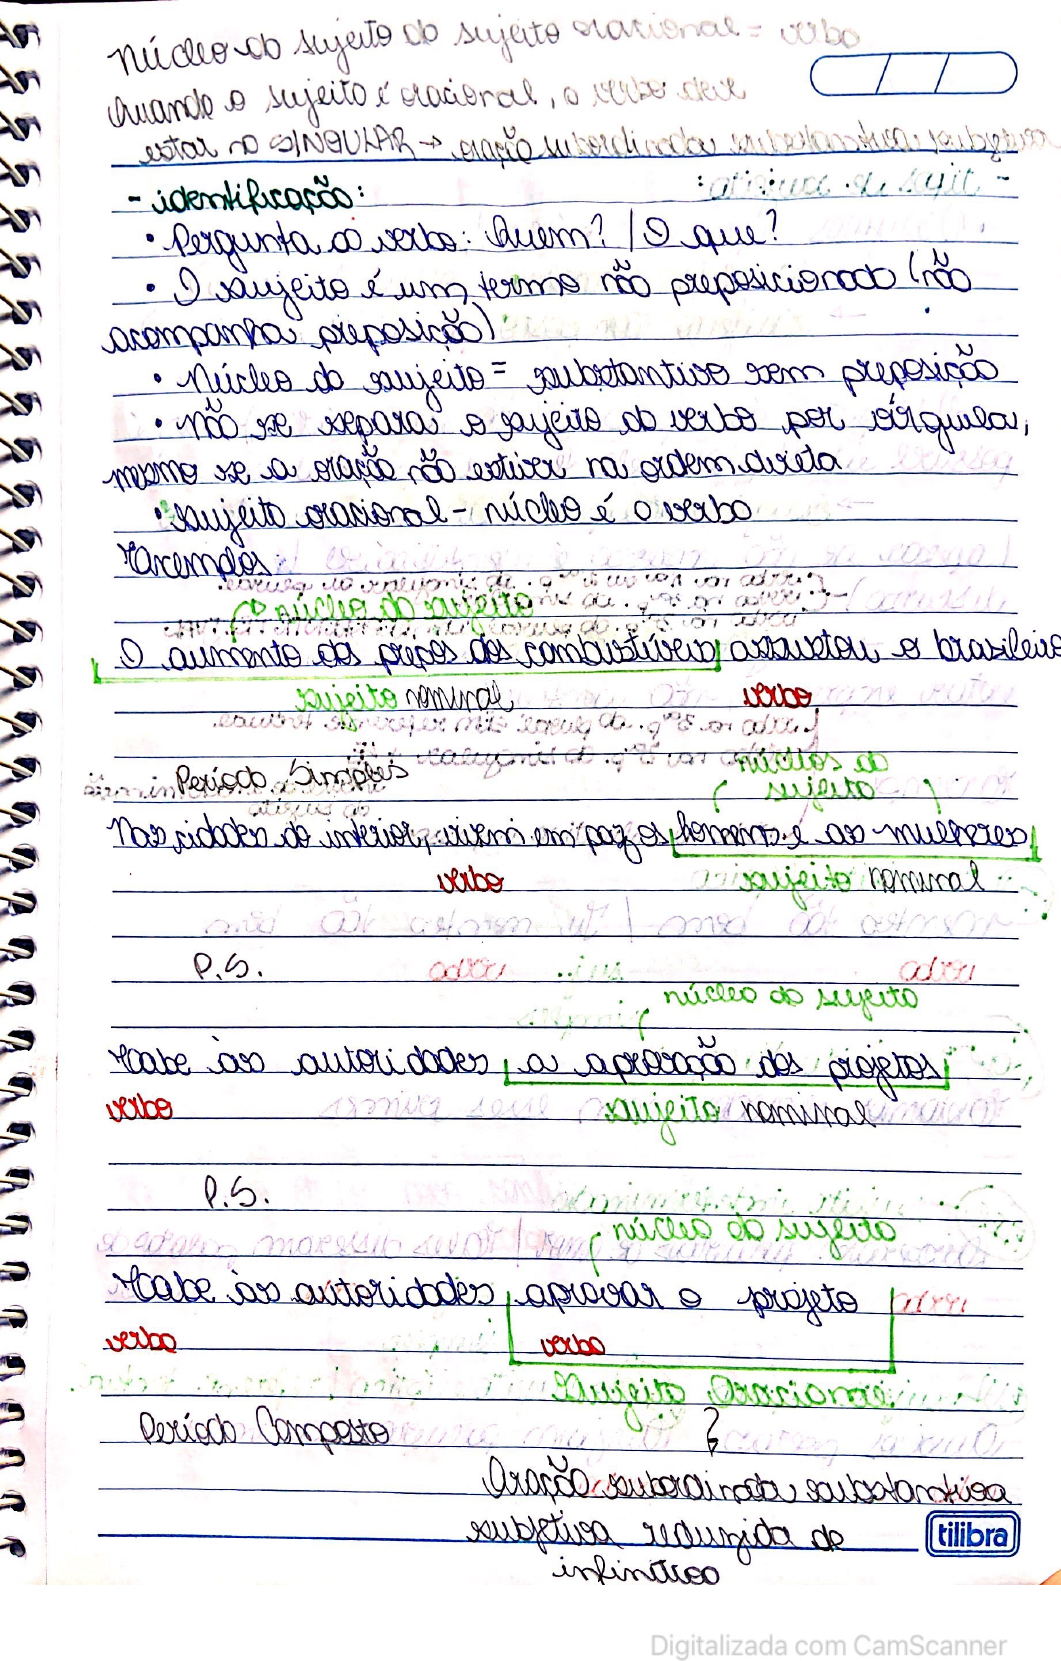 Núcleo do sujeito do sujeito oracional = verbo
Quando o sujeito é oracional, o verbo deve
estar no SINGULAR → oração subordinada substantiva subjetiva
- identificação:
• Pergunta ao verbo: Quem? / O que?
• O sujeito é um termo não preposicionado (não
acompanha preposição)
• Núcleo do sujeito = substantivo sem preposição
• Não se separa o sujeito do verbo por vírgula,
mesmo se a oração não estiver na ordem direta
• Sujeito oracional - núcleo é o verbo
Exemplos:
núcleo do sujeito
O aumento dos preços dos combustíveis assustou o brasileiro
sujeito nominal verbo
Período Simples
núcleos do
sujeito
Nas cidades do interior, vivem em paz os homens e as mulheres
verbo sujeito nominal
P.S.
núcleo do sujeito
Cabe às autoridades a aprovação dos projetos
verbo sujeito nominal
P.S.
núcleo do sujeito
Cabe às autoridades aprovar o projeto
verbo verbo
Sujeito Oracional
Período Composto
Oração subordinada substantiva
subjetiva reduzida de
infinitivo
tilibra
Digitalizada com CamScanner